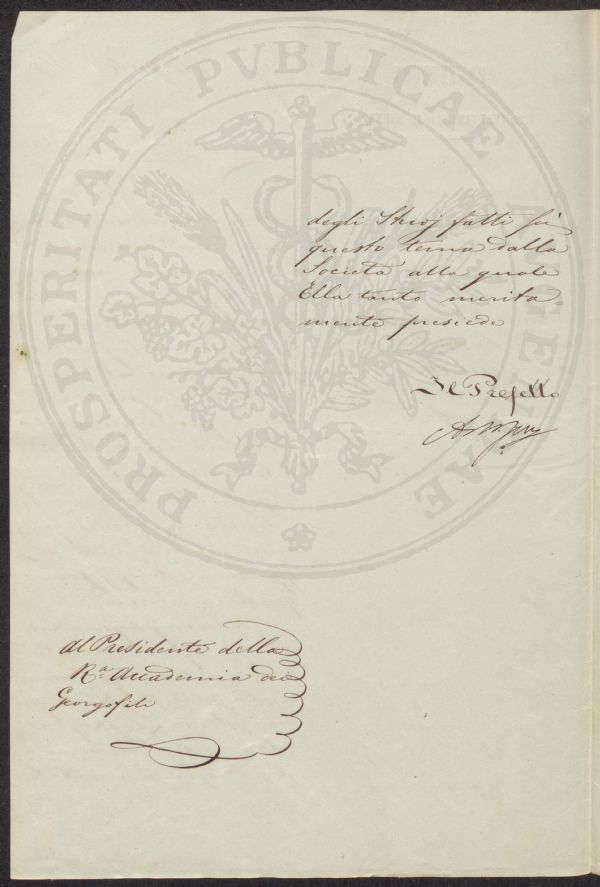 PROSPERITATI PVBLICAE AVGENDAE
degli Studj fatti su
questo tema dalla
Società alla quale
Ella tanto merita
mente presiede
Il Prefetto
Al Presidente della
R.a Accademia dei
Georgofili